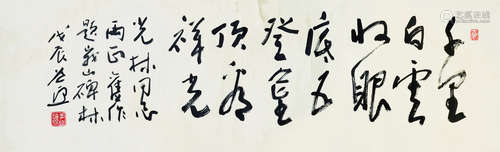 千里
白雲
收眼
底五
登臺
頂看
祥光
光林同志
两正舊作
題山碑林
戊辰